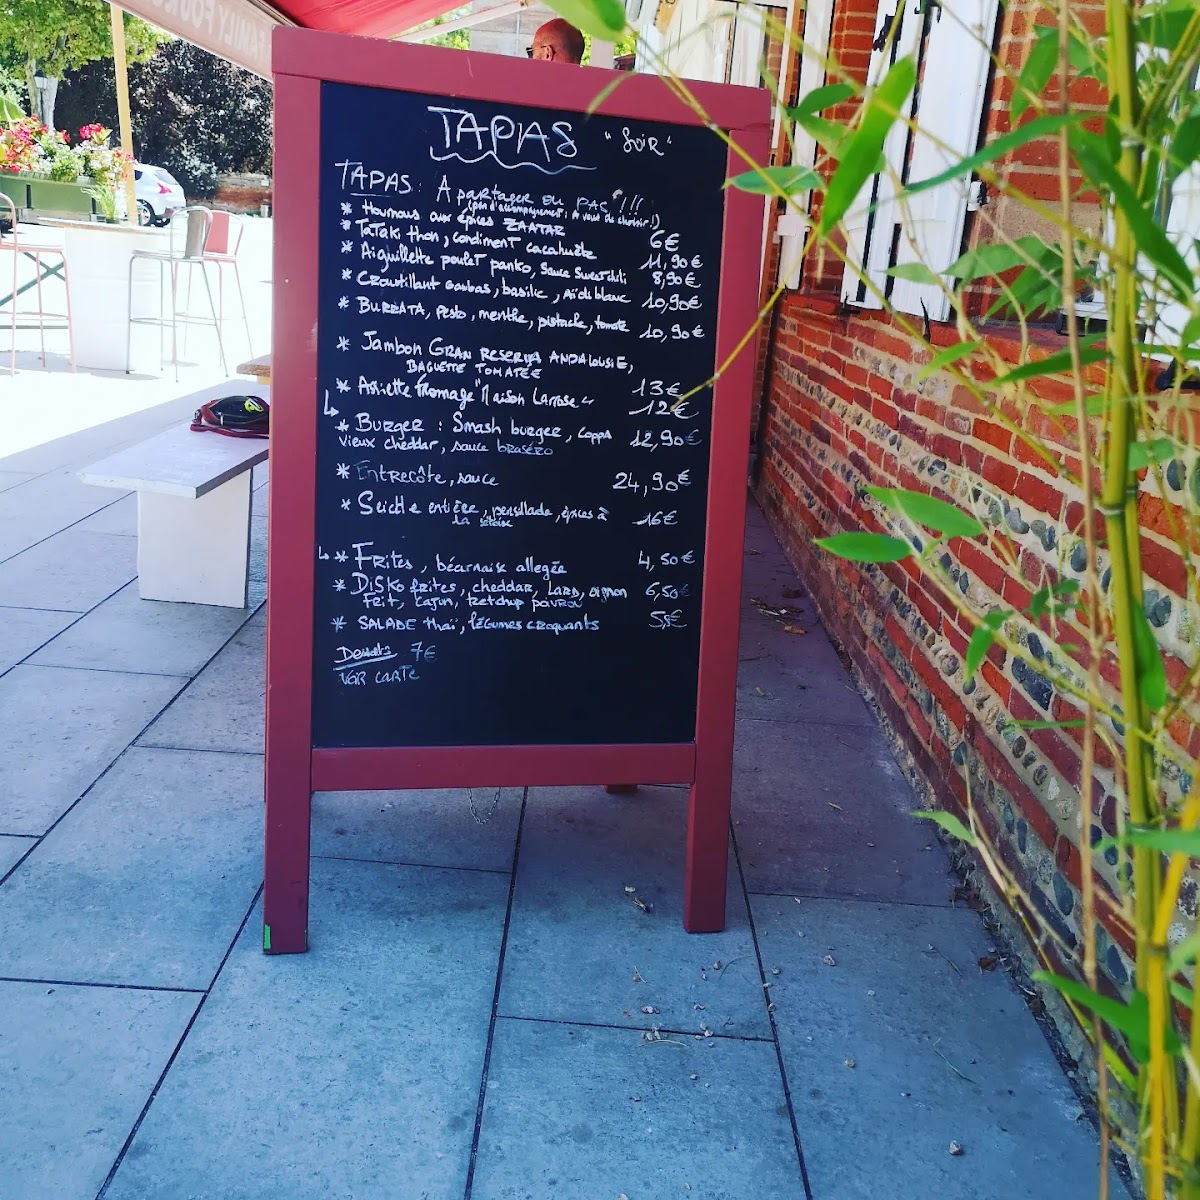 FAMILY FOOD
TAPAS "SOIR"
TAPAS: A partager ou PAS !!!
(pas d'accompagnement, A vous de choisir!)
* Houmous aux épices ZAATAR 6€
* Tataki thon, condiment cacahuète 11,90€
* Aiguillette poulet panko, sauce Sweet chili 8,90€
* Croustillant gambas, basilic, aïoli blanc 10,90€
* BURRATA, pesto, menthe, pistache, tomate 10,90€
* Jambon GRAN RESERVA ANDALOUSIE,
BAGUETTE TOMATÉE 13€
* Assiette fromage "Maison Larrose" 12€
* BURGER : Smash burger, coppa 12,90€
vieux cheddar, sauce braséro
* Entrecôte, sauce 24,90€
* Seiche entière, persillade, épices à 16€
la sétoise
* FRITES, béarnaise allegée 4,50€
* DISKO frites, cheddar, LARD, oignon 6,50€
Frit, cajun, ketchup poivron
* SALADE thaï, légumes croquants 5,5€
Desserts 7€
VOIR CARTE